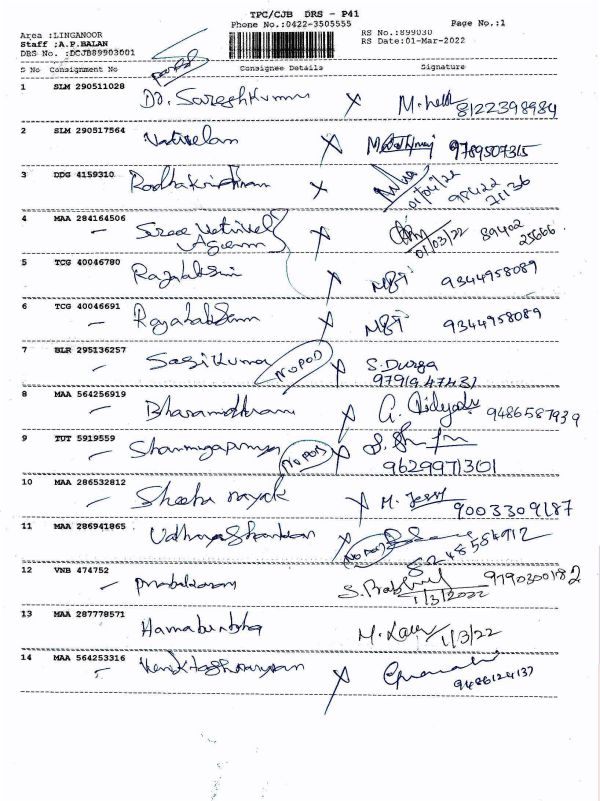 TPC/CJB DRS - P41
Phone No.:0422-3505555 Page No.:1
Area :LINGANOOR RS No.:899030
Staff :A.P.BALAN RS Date:01-Mar-2022
DRS No. :DCJB89903001
S No Consignment No Consignee Details Signature
1 SLM 290511028 Dr. Sureshkumar X 8122398984
2 SLM 290517564 Vativelan X 9789507315
3 DDG 4159310 Radhakrishnan X 01/04/22 98422 71136
4 MAA 284164506 Sree Vetrivel X 01/03/22 89402 25666
Agency
5 TCG 40046780 Rajalakshmi X MBT 9344958089
6 TCG 40046691 Rajalakshmi X MBT 9344958089
7 BLR 295136257 Sasikumar NO POD X S. Durga
9791947431
8 MAA 564256919 X 9486587939
9 TUT 5919559 Shanmugapriya NO POD X
9629971301
10 MAA 286532812 Sheeba nayak X M. Jessy 9003309187
11 MAA 286941865 Udhayashankar X NO POD 8248554912
12 VNB 474752 Prabakaran S. Prabhu 9790300182
1/3/2022
13 MAA 287778571 1/3/22
14 MAA 564253316 X
9486124137